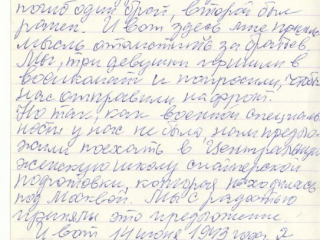 погиб один брат, второй был
ранен. И вот здесь мне пришла
мысль отомстить за братьев.
Мы, три девушки пришли в
военкомат и попросили, чтобы
нас отправили на фронт.
Но так, как военной специаль
ности у нас не было, нам предло
жили поехать в Центральную
женскую школу снайперской
подготовки, которая находилась
под Москвой. Мы с радостью
приняли это предложение.
И вот 14 июня 1943 года 2